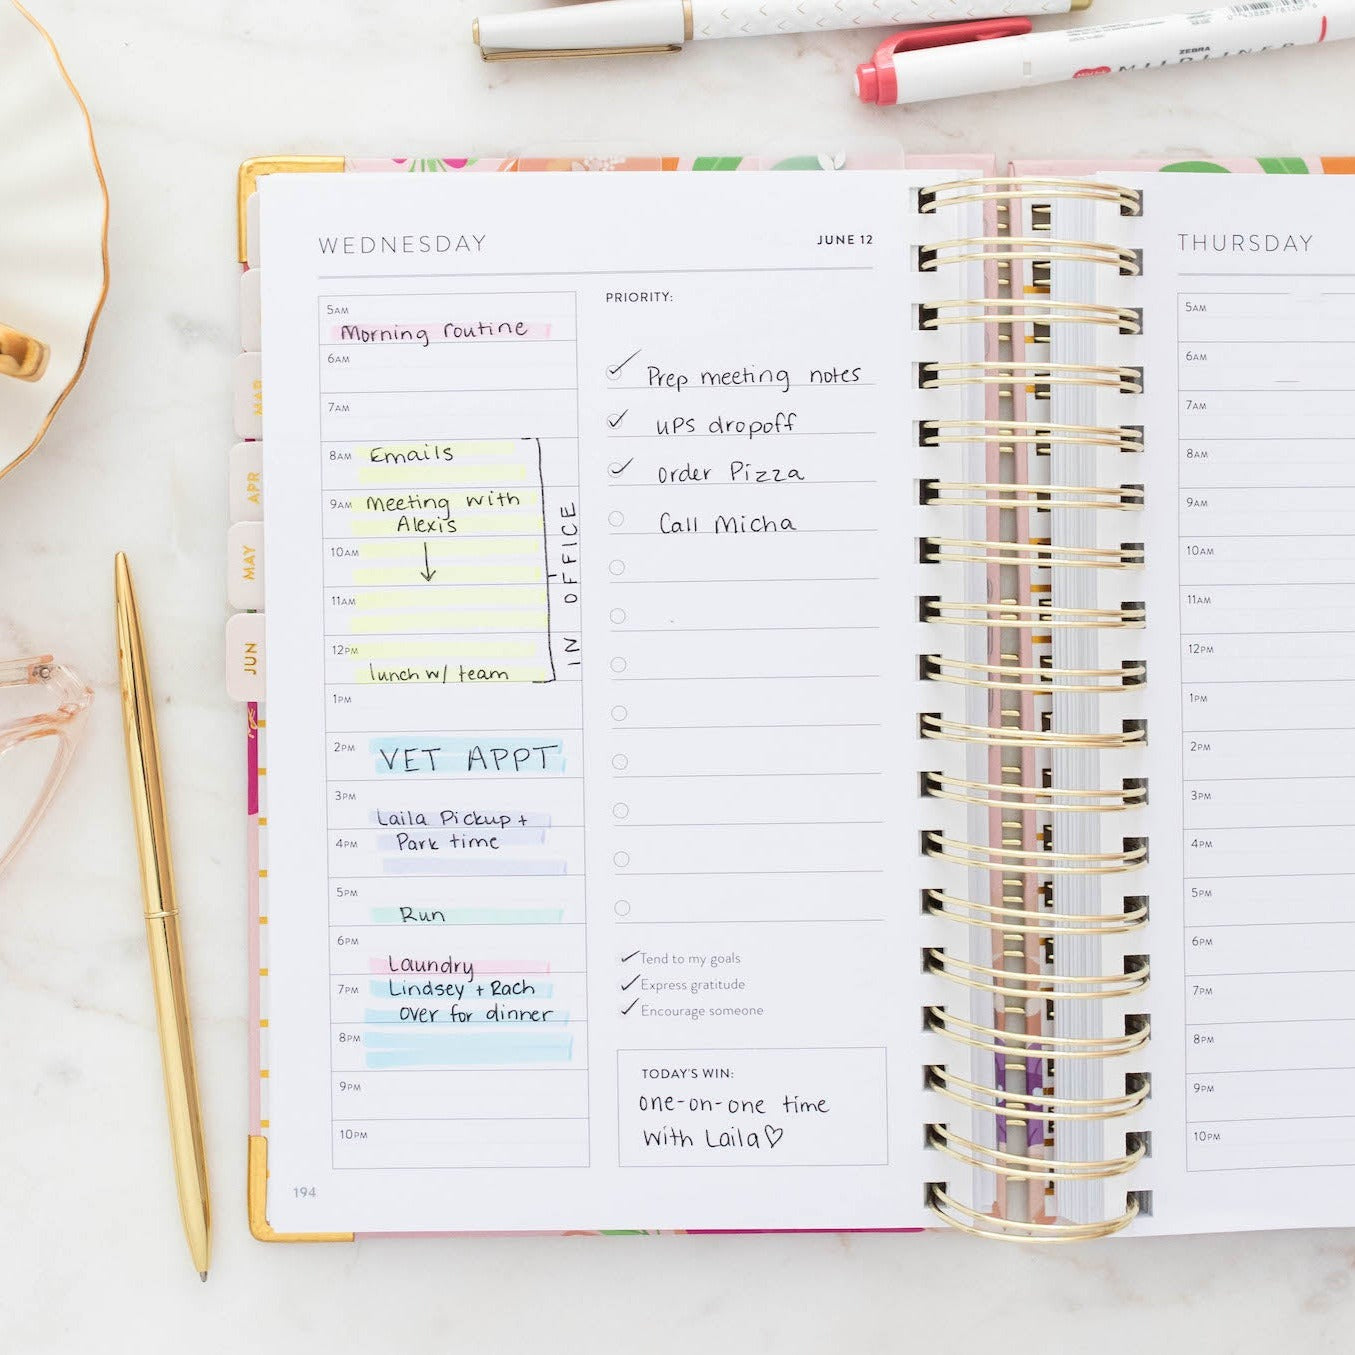 ZEBRA
MILDLINER
WEDNESDAY
JUNE 12
5AM
Morning routine
6AM
7AM
8AM Emails
9AM Meeting with
Alexis
10AM
11AM
12PM
lunch w/ team
IN OFFICE
1PM
2PM VET APPT
3PM
Laila Pickup +
4PM Park time
5PM
Run
6PM
Laundry
7PM Lindsey + Rach
over for dinner
8PM
9PM
10PM
PRIORITY:
Prep meeting notes
UPS dropoff
Order Pizza
Call Micha
Tend to my goals
Express gratitude
Encourage someone
TODAY'S WIN:
one-on-one time
with Laila♡
194
MAR
APR
MAY
JUN
THURSDAY
5AM
6AM
7AM
8AM
9AM
10AM
11AM
12PM
1PM
2PM
3PM
4PM
5PM
6PM
7PM
8PM
9PM
10PM